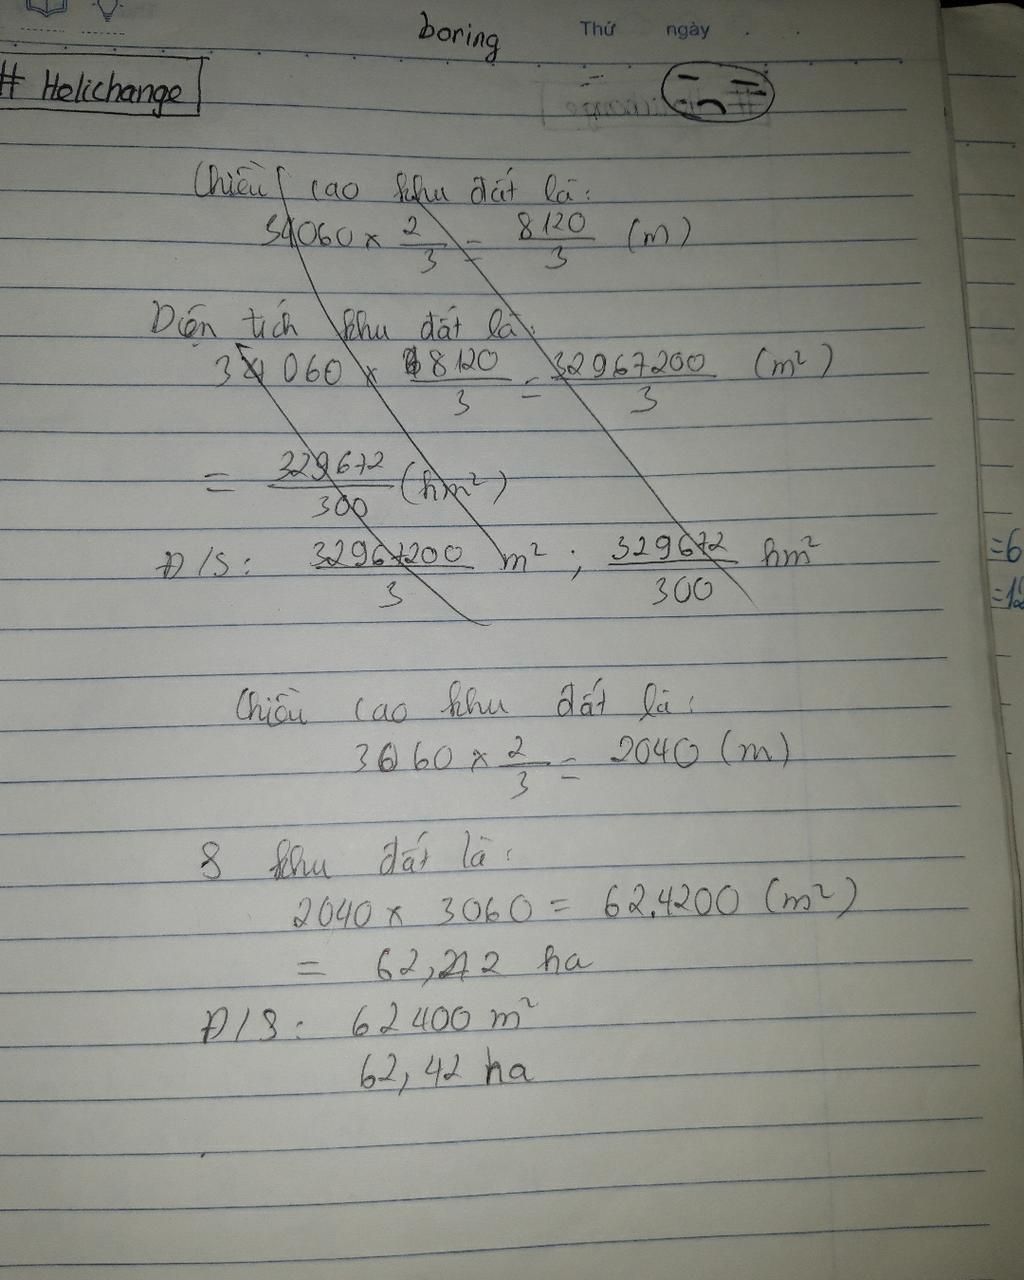 boring
Thứ ngày
# Helichange
Chiều cao khu đất là:
34060 × 2/3 = 8120/3 (m)
Diện tích khu đất là:
34060 × 8120/3 = 32967200/3 (m²)
= 329672/300 (hm²)
Đ/S: 32967200/3 m² ; 329672/300 hm²
Chiều cao khu đất là:
3060 × 2/3 = 2040 (m)
S khu đất là:
2040 × 3060 = 62.4200 (m²)
= 62,272 ha
Đ/S: 62400 m²
62,42 ha
=6